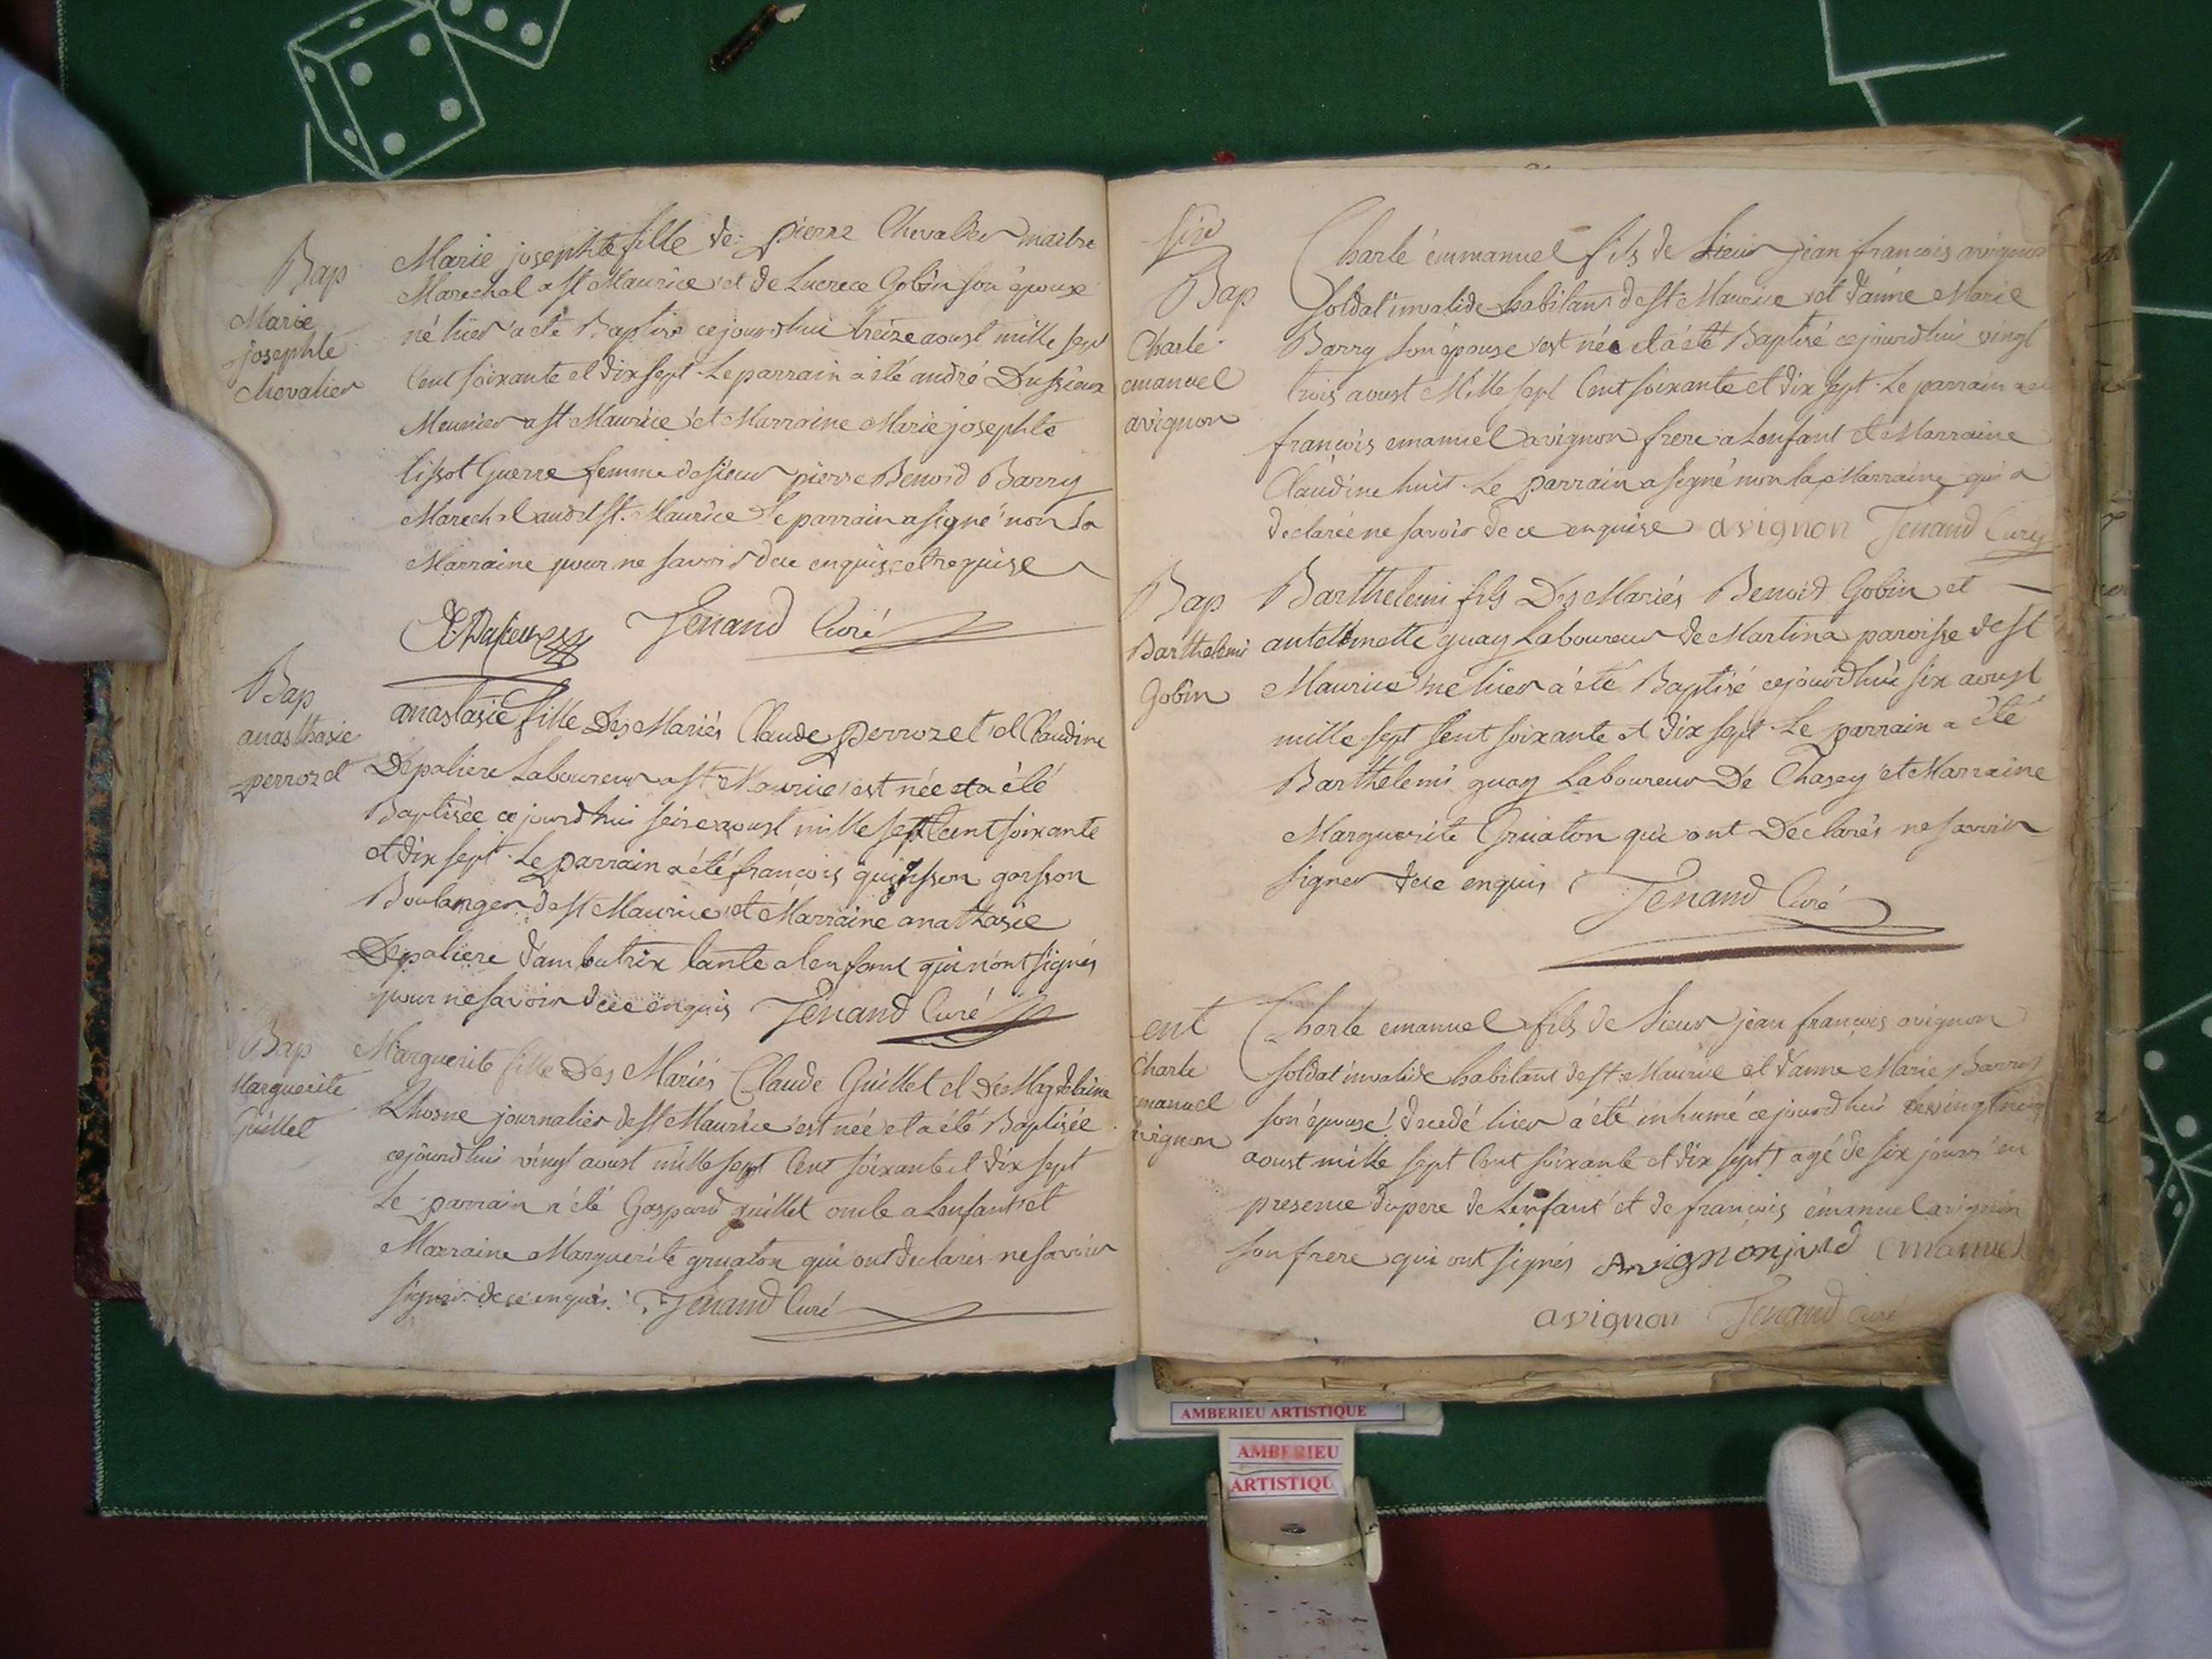 Bap
Marie
josephte
chevalier
Marie josephte fille de pierre Chevalier maitre
Marechal a st Maurice et de Lucrece Gobin son épouse
né hier a eté Baptisé cejourd'hui treize aoust mille sept
Cent soixante et dix sept. Le parrain a été andré Dussieux
Meunier a st Maurice et Marraine Marie josephte
tissot Guerre femme de sieur pierre Benoid Barry
Marechal audt st. Maurice Le parrain a signé non la
Marraine pour ne savoir de ce enquise et requise
Tenand Curé
Bap
anasthasie
perrozet
anastasie fille Des Mariés Claude perrozet et Claudine
Depaliere Laboureur a st Maurice est née et a été
Baptisée cejourdhui seize aoust mille sept Cent soixante
et dix sept. Le parrain a été françois garsson
Boulanger de st Maurice et Marraine anathasie
Depaliere d'ambutrix tante a lenfant qui n'ont signés
pour ne savoir de ce enquis Tenand Curé
Bap
Marguerite
Guillet
Marguerite fille Des Mariés Claude Guillet et De Magdelaine
Rhosne journalier de st Maurice est née et a été Baptisée
cejourdhui vingt aoust mille sept Cent soixante et dix sept
Le parrain a été Gaspard guillet oncle a Lenfant et
Marraine Marguerite gruaton qui ont declarés ne savoir
signer de ce enquis. Tenand Curé
Bap
Charle
emanuel
avignon
Charle émmanuel fils de Sieur jean françois avignon
soldat invalide habitant de st Maurice et d'anne Marie
Barry son épouse est née et a été Baptisé cejourdhui vingt
trois aoust Mille sept Cent soixante et dix sept. Le parrain a été
françois emanuel avignon frere a Lenfant et Marraine
Claudine huit. Le parrain a signé non la Marraine qui a
declarée ne savoir de ce enquise avignon Tenand Curé
Bap
Barthelemi
Gobin
Barthelemi fils Des Mariés Benoid Gobin et
antoinette guay Laboureur de Martina paroisse de st
Maurice né hier a été Baptisé cejourdhui six aoust
mille sept Cent soixante et dix sept. Le parrain a été
Barthelemi guay Laboureur De Chasey et Marraine
Marguerite Gruaton qui ont Declarés ne savoir
signer de ce enquis Tenand Curé
ent
Charle
emanuel
avignon
Charle emanuel fils de Sieur jean françois avignon
soldat invalide habitant de st. Maurice et d'anne Marie Barry
son épouse decedé hier a été inhumé cejourdhui vingt neuf
aoust mille sept Cent soixante et dix sept agé de six jours en
presence du pere de Lenfant et de françois émanuel avignon
son frere qui ont signés Avignon emanuel
avignon Tenand curé
AMBERIEU ARTISTIQUE
AMBERIEU
ARTISTIQU